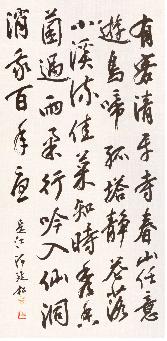 有客清平寺春山任意
遊鳥啼孤塔靜花落
小溪流佳菜知時秀香
菌過雨柔行吟入仙洞
消我百年